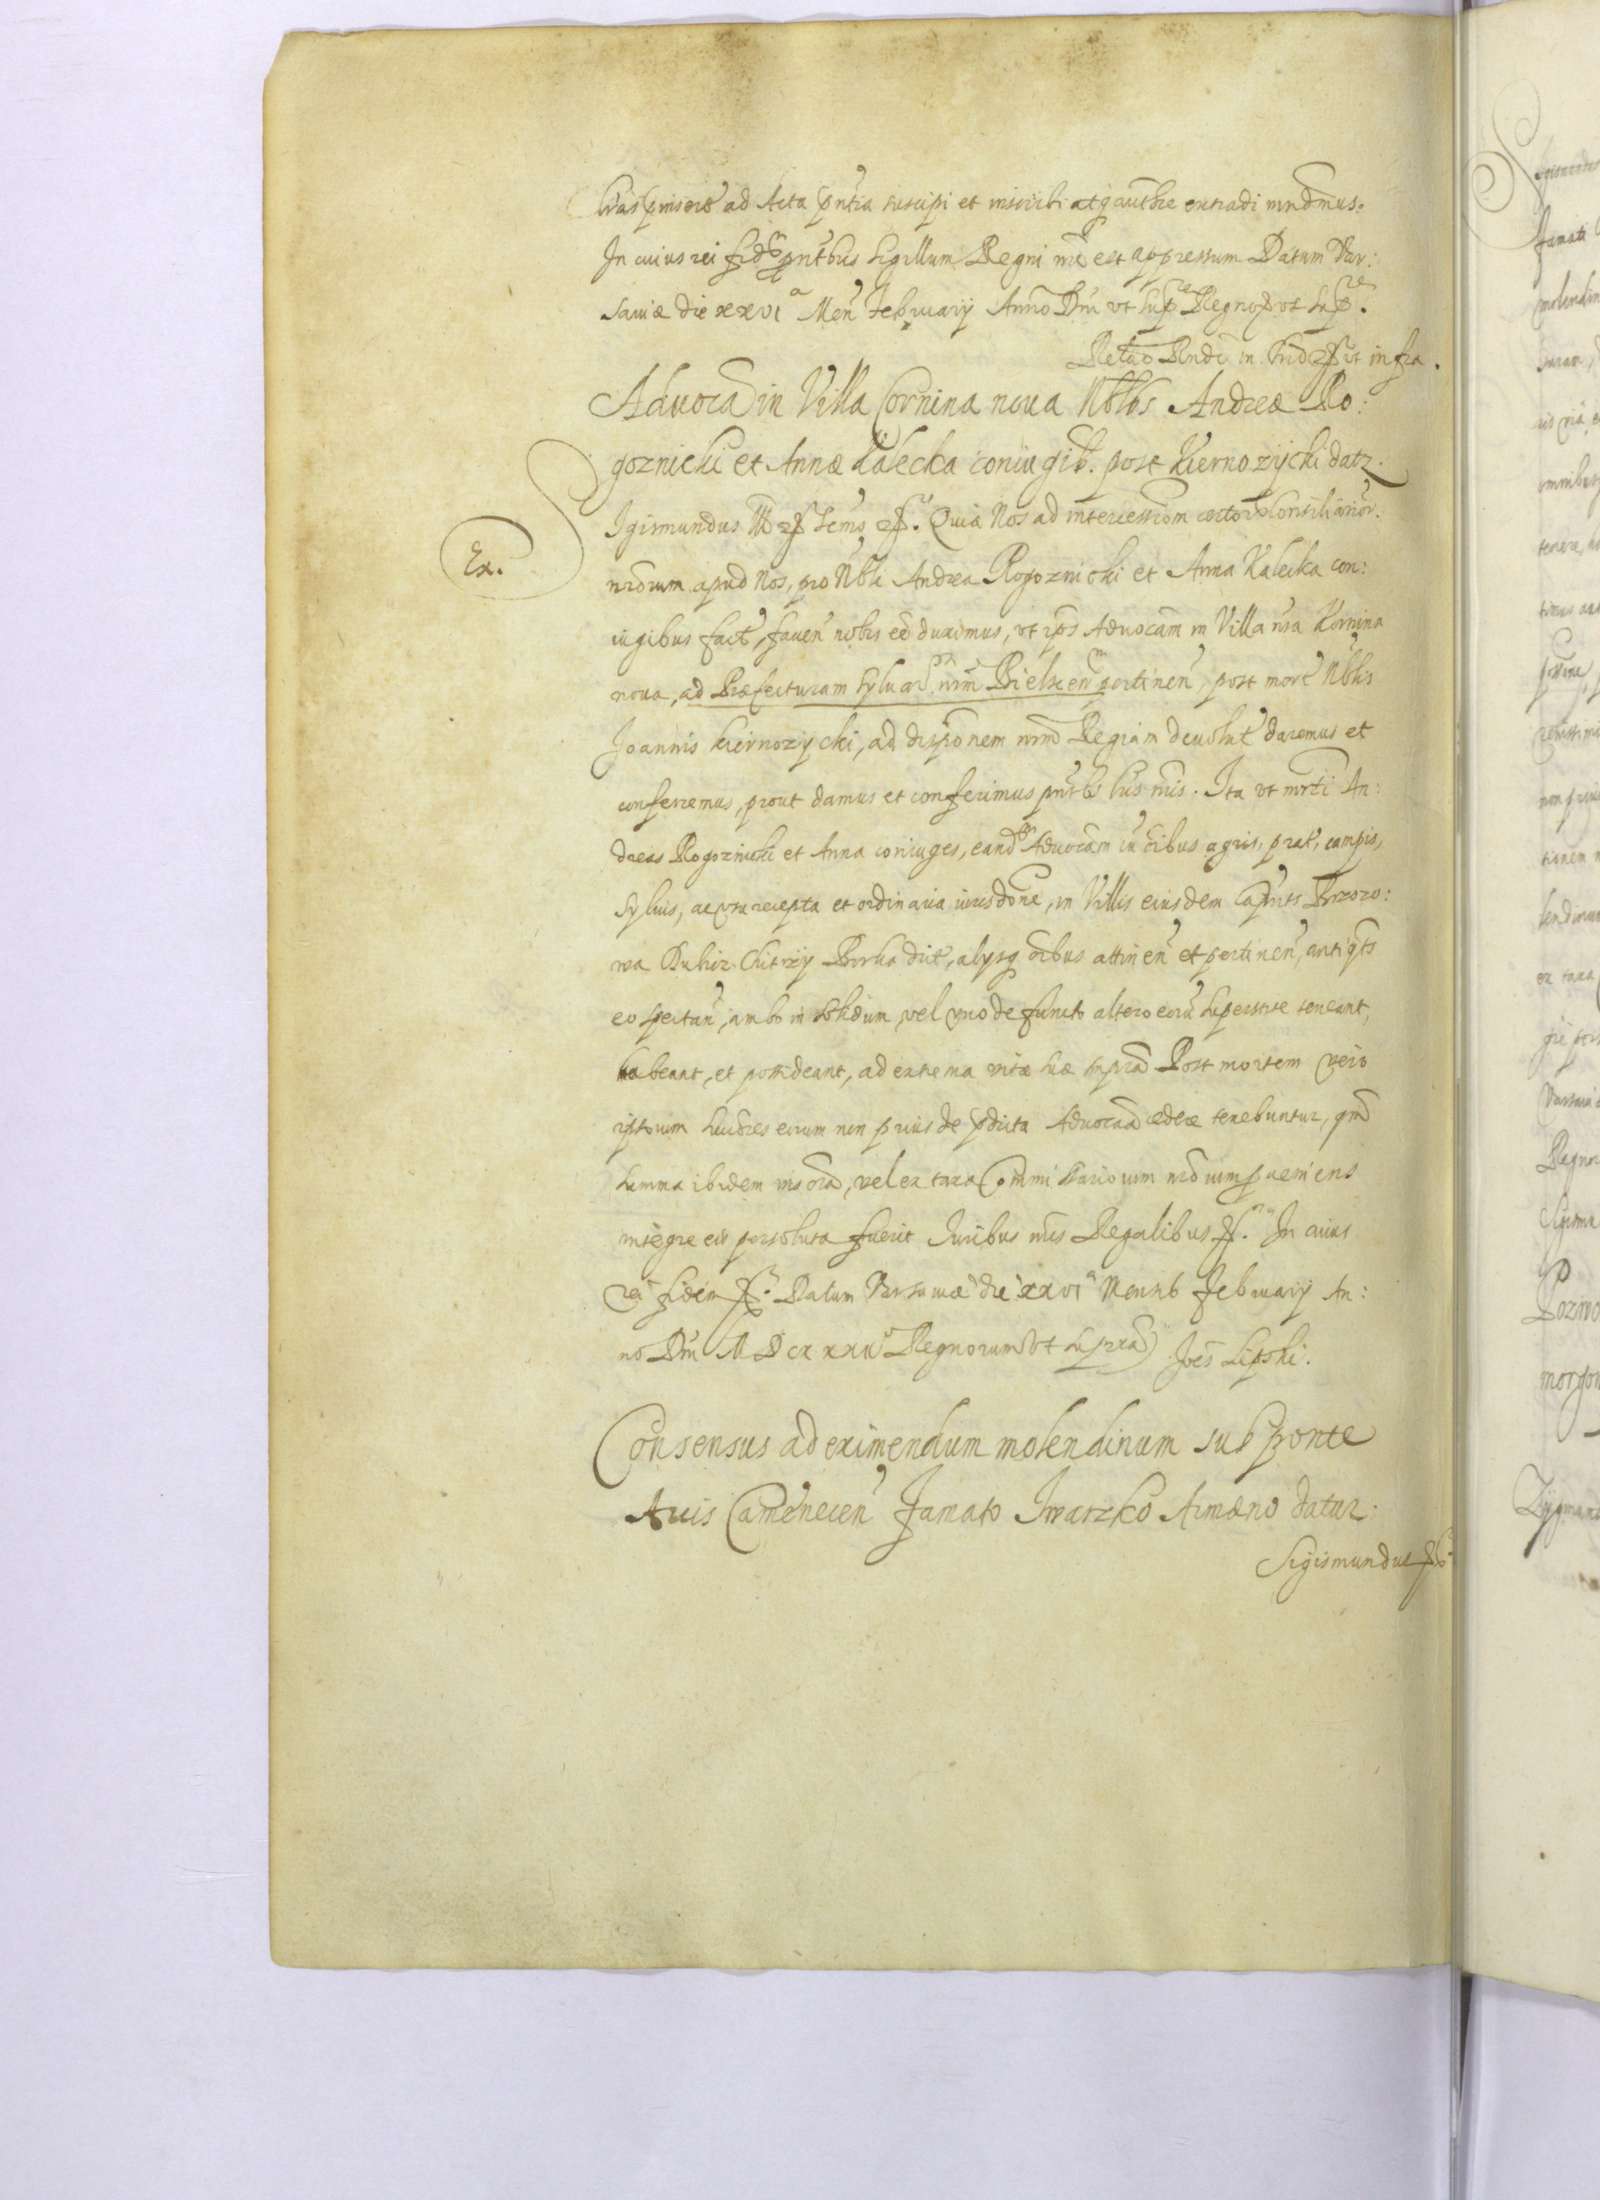 ad Acta pntia suscipi et inscribi atq authce extradi mndmus.
In cuius rei fidem pntbus Sigillum Regni nri est appressum Datum Var:
saviæ die xxvi a Men Februarij Anno Dni vt sup Regnor vt sup.
Relao Rndi in infra.
Advocaa in Villa Cornina noua Nblbs Andreæ Ro:
goznicki et Annæ Kalecka coniugib. post Kiernozijcki datr.
Ex.
Igismundus Quia Nos ad intercessiom certor Consiliarior.
nrorum apud Nos, pro Nbli Andrea Rogoznicki et Anna Kalecka con:
iugibus fact, fauen nobis duximus, vt ips Advocam in Villa nra Kornina
noua, ad Præfecturam Syluar nrm Bielscen pertinen, post mort Nblis
Joannis Kiernozycki, ad dispionem nrm Regiam devolut daremus et
conferremus, prout damus et conferimus pntbs lris nris. Ita vt mrti An:
dreas Rogoznicki et Anna coniuges, eand Advocam cu oibus agris, prat, campis,
syluis, ac vsu recepta et ordinaria iurisdone, in Villis eiusdem Capnts Brzozo:
wa Dubicz Chitrzy Borka dict, alysq oibus attinen et pertinen, antiqts
eo spectan, ambo in solidum, vel vno defuncto altero eoru superstite teneant,
habeant, et possideant, ad extrema vitæ suæ tempora Post mortem vero
ipsorum succres eorum non prius de pdicta Advocaa cedere tenebuntur, qm
summa ibidem inscra, vel ex taxa Commissariorum nrorum proveniens
integre eis persoluta fuerit Iuribus nris Regalibus In cuius
rei fidem Datum Varsaviæ die xxvi a Mensis Februarij An:
no Dni Regnorum vt supra Joes Lipski.
Consensus ad eximendum molendinum sub ponte
Arcis Camenecen Famato Iwaszko Armæno datur.
Sigismundus